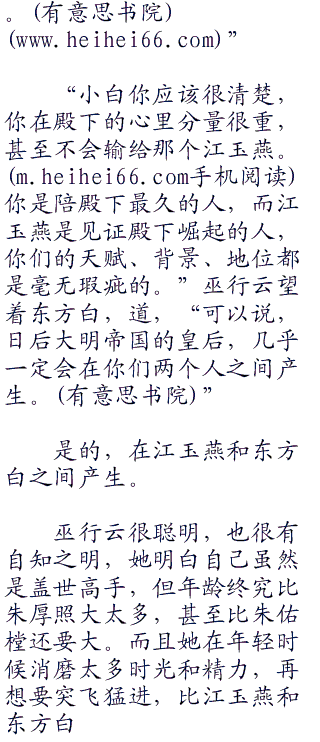 。(有意思书院)
(www.heihei66.com)”
“小白你应该很清楚，
你在殿下的心里分量很重，
甚至不会输给那个江玉燕。
(m.heihei66.com手机阅读)
你是陪殿下最久的人，而江
玉燕是见证殿下崛起的人，
你们的天赋、背景、地位都
是毫无瑕疵的。”巫行云望
着东方白，道，“可以说，
日后大明帝国的皇后，几乎
一定会在你们两个人之间产
生。(有意思书院)”
是的，在江玉燕和东方
白之间产生。
巫行云很聪明，也很有
自知之明，她明白自己虽然
是盖世高手，但年龄终究比
朱厚照大太多，甚至比朱佑
樘还要大。而且她在年轻时
候消磨太多时光和精力，再
想要突飞猛进，比江玉燕和
东方白